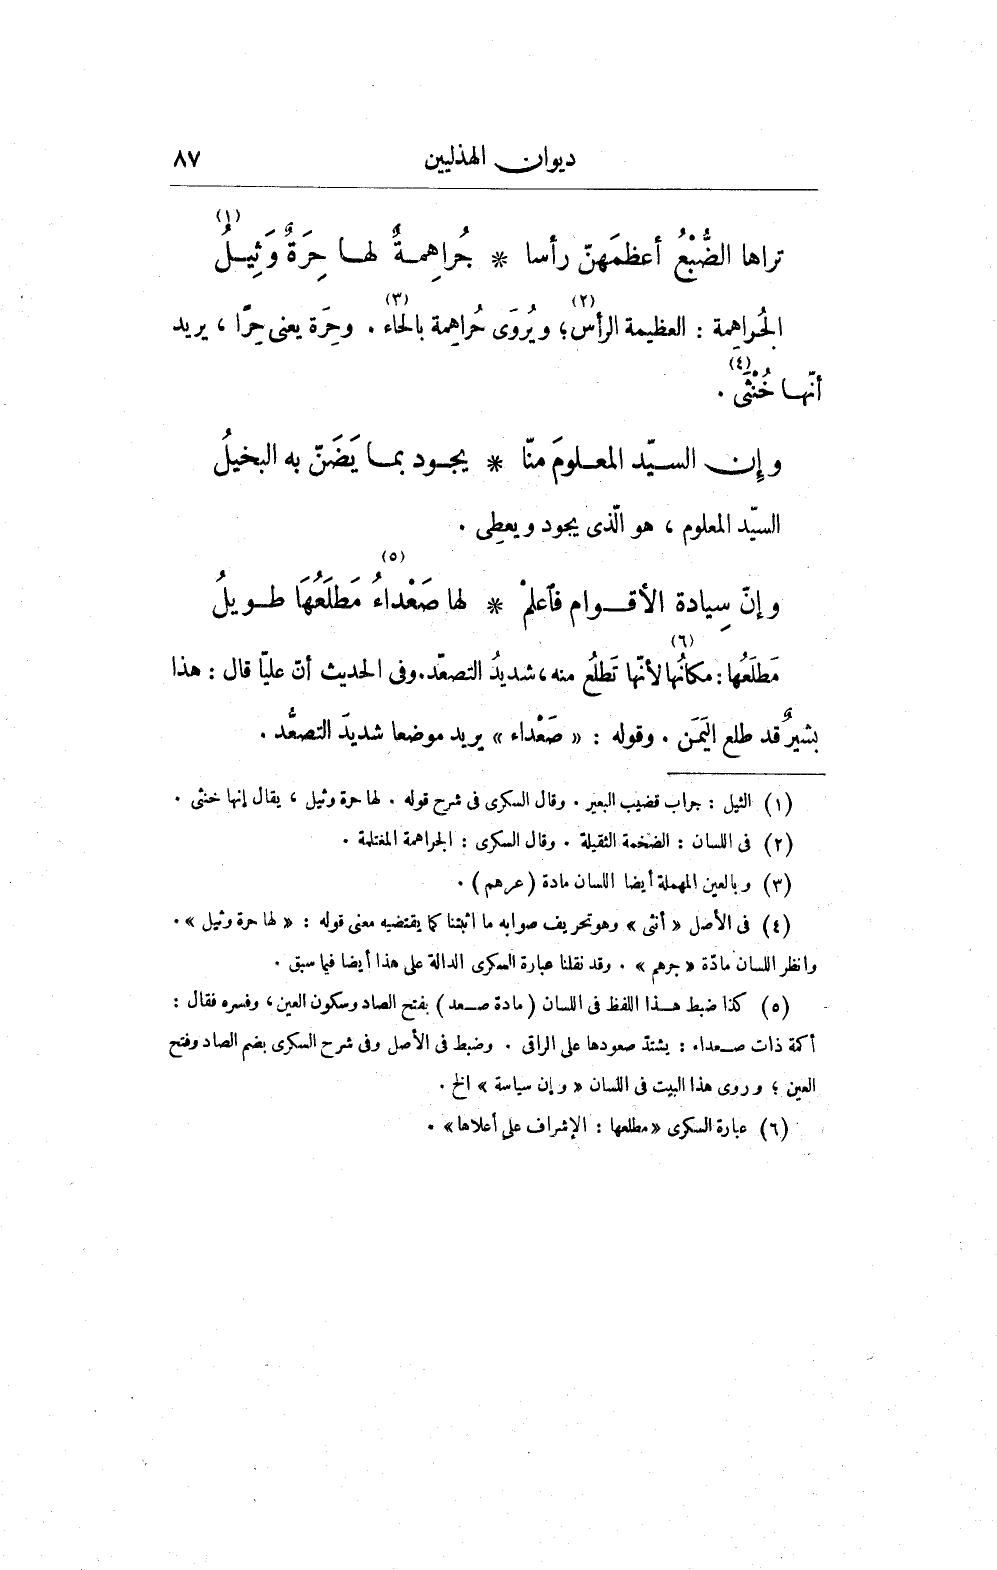 ديوان الهذليين ٨٧
(١)
تراها الضُّبْعُ أعظمَهنّ رأسا * جُراهِمـةٌ لهـا حِرَةٌ وَثِيـلُ
(٢) (٣)
الجُراهِمة : العظيمة الرأس؛ ويُروَى حُراهِمة بالحاء . وحِرَة يعنى حِرًّا ، يريد
(٤)
أنّهـا خُنْثَى .
وإن السـيّد المعـلومَ منّا * يجـود بمـا يَضَنّ به البخيلُ
السيّد المعلوم ، هو الّذى يجود ويعطِى .
(٥)
وإنّ سِيادة الأقـوام فٱعلمْ * لها صَعْداءُ مَطلَعُهَا طـويلُ
(٦)
مَطلَعُها : مكانُها لأنّها تَطلُع منه ، شديدُ التصعّد . وفى الحديث أنّ عليّا قال : هذا
بشيرٌ قد طلع اليَمَن . وقوله : « صَعْداء » يريد موضعا شديدَ التصعُّد .
(١) الثيل : جراب قضيب البعير . وقال السكرى فى شرح قوله . لها حرة وثيل ، يقال إنها خنثى .
(٢) فى اللسان : الضخمة الثقيلة . وقال السكرى : الجراهمة المغتلمة .
(٣) وبالعين المهملة أيضا اللسان مادة (عرهم) .
(٤) فى الأصل « أنثى » وهو تحريف صوابه ما اثبتنا كما يقتضيه معنى قوله : « لها حرة وثيل » .
وانظر اللسان مادّة « جرهم » . وقد نقلنا عبارة السكرى الدالة على هذا أيضا فيما سبق .
(٥) كذا ضبط هـذا اللفظ فى اللسان ( مادة صـعد ) بفتح الصاد وسكون العين ، وفسره فقال :
أكمة ذات صـعداء : يشتدّ صعودها على الراقى . وضبط فى الأصل وفى شرح السكرى بضم الصاد وفتح
العين ؛ وروى هذا البيت فى اللسان « وإن سياسة » الخ .
(٦) عبارة السكرى « مطلعها : الإشراف على أعلاها » .